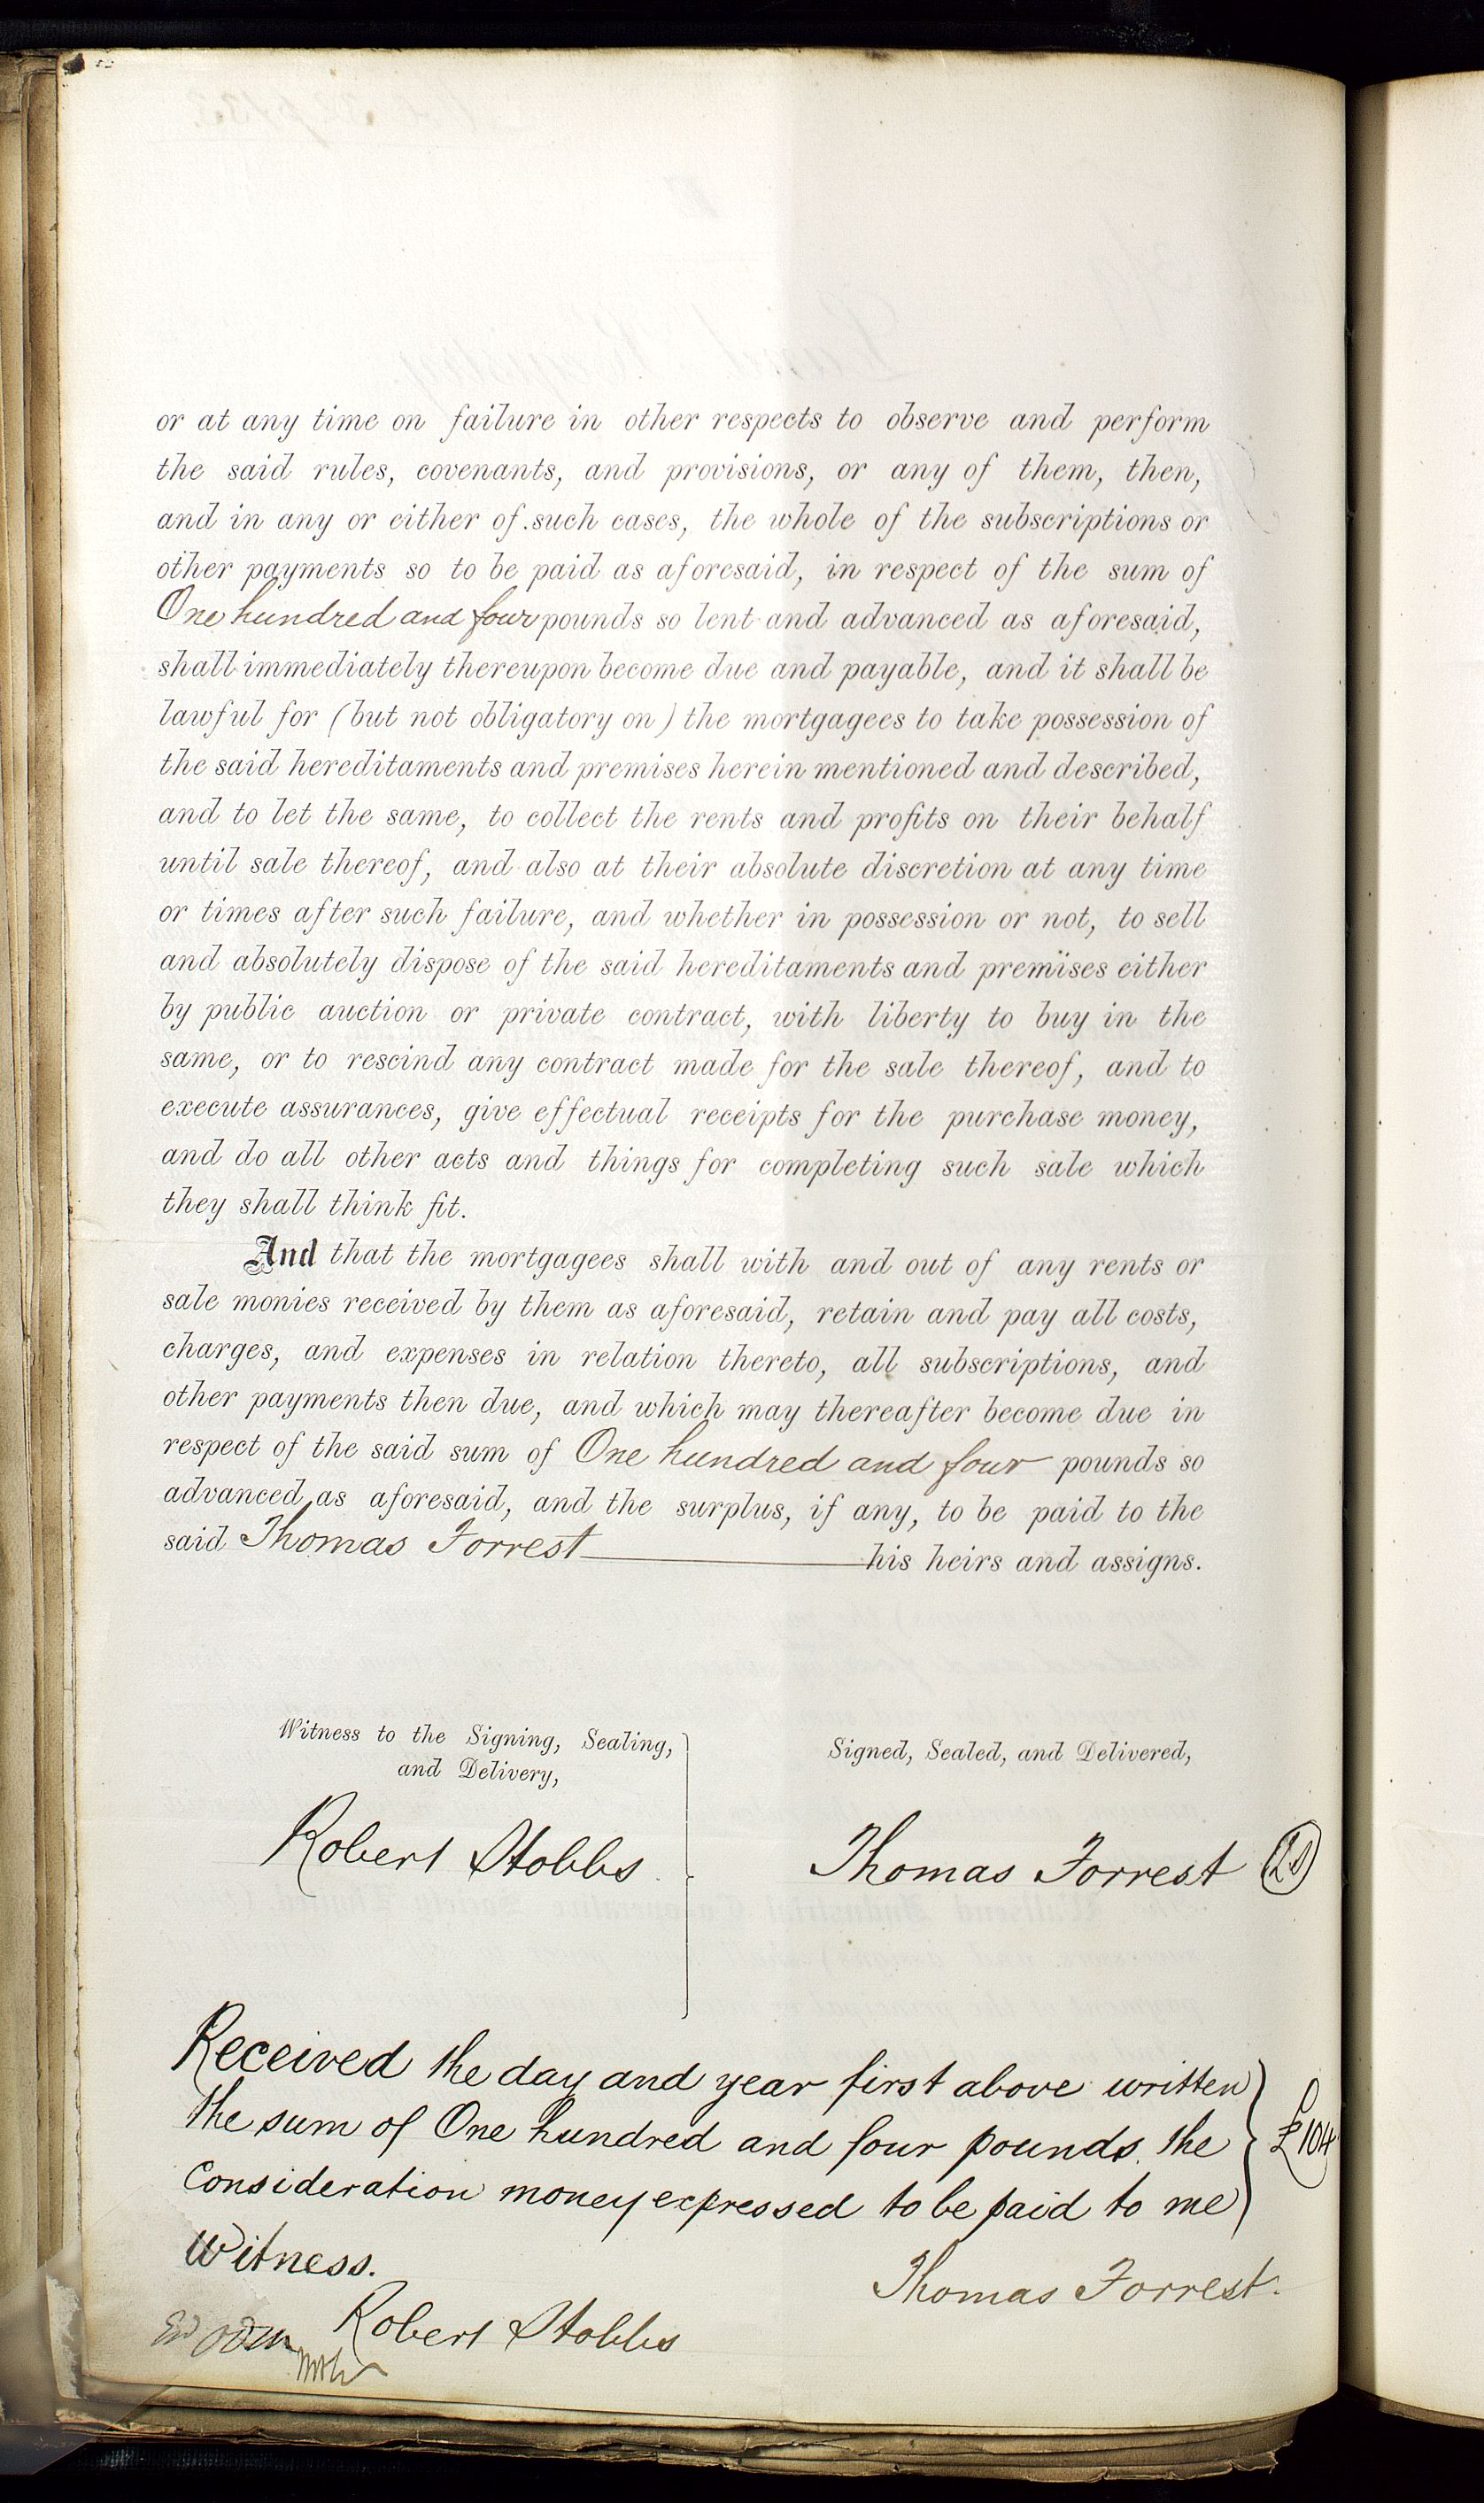 or at any time on failure in other respects to observe and perform
the said rules, covenants, and provisions, or any of them, then,
and in any or either of such cases, the whole of the subscriptions or
other payments so to be paid as aforesaid, in respect of the sum of
One hundred and four pounds so lent and advanced as aforesaid,
shall immediately thereupon become due and payable, and it shall be
lawful for (but not obligatory on) the mortgagees to take possession of
the said hereditaments and premises herein mentioned and described,
and to let the same, to collect the rents and profits on their behalf
until sale thereof, and also at their absolute discretion at any time
or times after such failure, and whether in possession or not, to sell
and absolutely dispose of the said hereditaments and premises either
by public auction or private contract, with liberty to buy in the
same, or to rescind any contract made for the sale thereof, and to
execute assurances, give effectual receipts for the purchase money,
and do all other acts and things for completing such sale which
they shall think fit.
And that the mortgagees shall with and out of any rents or
sale monies received by them as aforesaid, retain and pay all costs,
charges, and expenses in relation thereto, all subscriptions, and
other payments then due, and which may thereafter become due in
respect of the said sum of One hundred and four pounds so
advanced as aforesaid, and the surplus, if any, to be paid to the
said Thomas Forrest his heirs and assigns.
Witness to the Signing, Sealing,
and Delivery,
Robert Stobbs
Signed, Sealed, and Delivered,
Thomas Forrest LS
Received the day and year first above written
the sum of One hundred and four pounds. the £104
Consideration money expressed to be paid to me
Witness.
Thomas Forrest.
Robert Stobbs